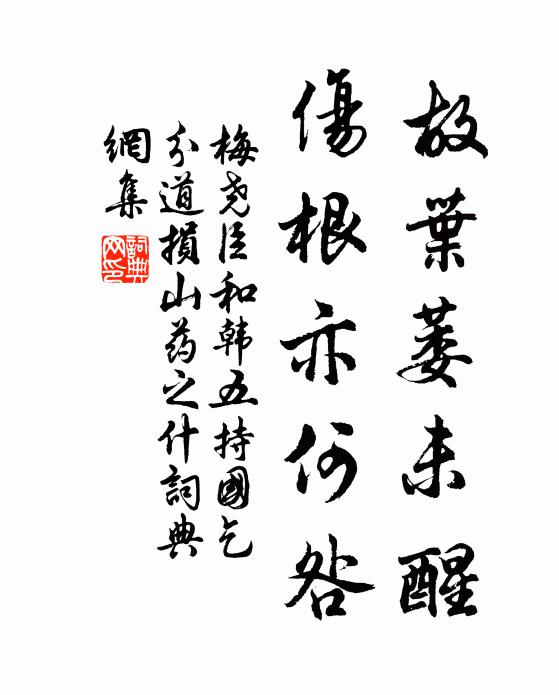 故葉萎未醒
傷根亦何咎
梅尧臣和韩五持國乞
分道損山药之什詞典
網集
詞典網印